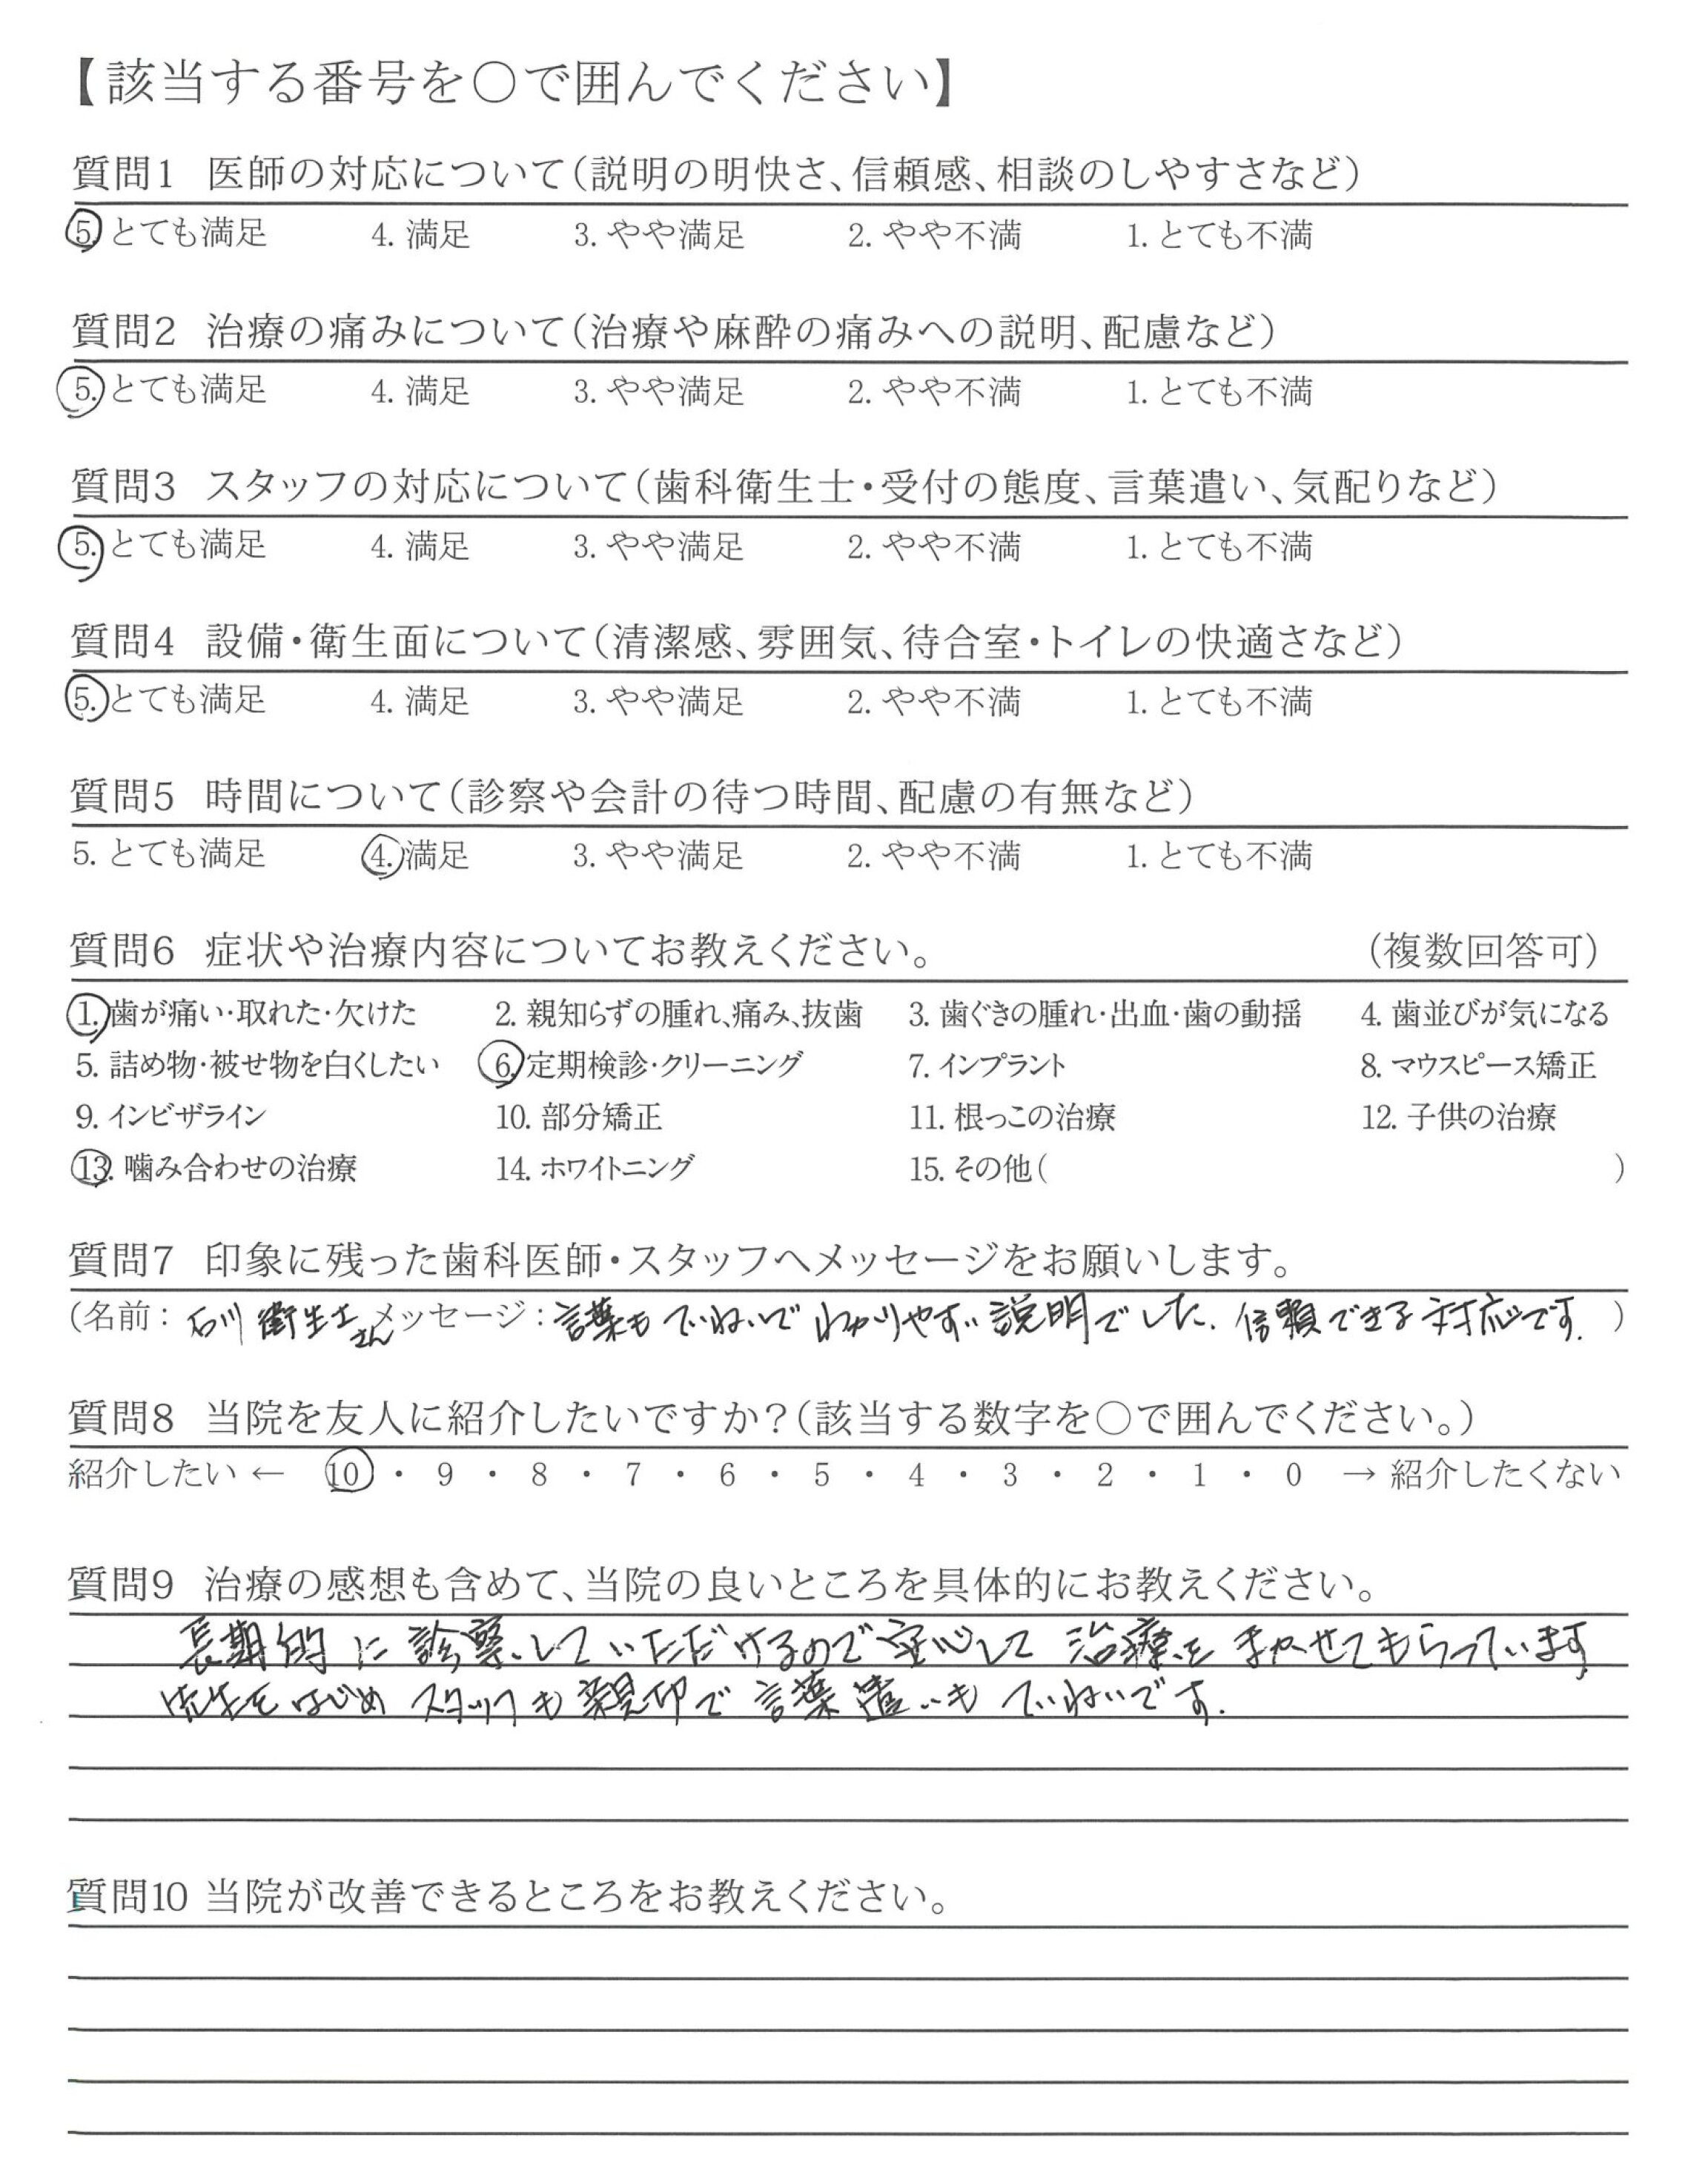 【該当する番号を○で囲んでください】
質問1 医師の対応について(説明の明快さ、信頼感、相談のしやすさなど)
5. とても満足 4. 満足 3. やや満足 2. やや不満 1. とても不満
質問2 治療の痛みについて(治療や麻酔の痛みへの説明、配慮など)
5. とても満足 4. 満足 3. やや満足 2. やや不満 1. とても不満
質問3 スタッフの対応について(歯科衛生士・受付の態度、言葉遣い、気配りなど)
5. とても満足 4. 満足 3. やや満足 2. やや不満 1. とても不満
質問4 設備・衛生面について(清潔感、雰囲気、待合室・トイレの快適さなど)
5. とても満足 4. 満足 3. やや満足 2. やや不満 1. とても不満
質問5 時間について(診察や会計の待つ時間、配慮の有無など)
5. とても満足 4. 満足 3. やや満足 2. やや不満 1. とても不満
質問6 症状や治療内容についてお教えください。 (複数回答可)
1. 歯が痛い・取れた・欠けた 2. 親知らずの腫れ、痛み、抜歯 3. 歯ぐきの腫れ・出血・歯の動揺 4. 歯並びが気になる
5. 詰め物・被せ物を白くしたい 6. 定期検診・クリーニング 7. インプラント 8. マウスピース矯正
9. インビザライン 10. 部分矯正 11. 根っこの治療 12. 子供の治療
13. 噛み合わせの治療 14. ホワイトニング 15. その他( )
質問7 印象に残った歯科医師・スタッフへメッセージをお願いします。
(名前: 石川 衛生士さん メッセージ: 言葉もていねいでわかりやすい説明でした. 信頼できる対応です. )
質問8 当院を友人に紹介したいですか?(該当する数字を○で囲んでください。)
紹介したい ← 10 ・ 9 ・ 8 ・ 7 ・ 6 ・ 5 ・ 4 ・ 3 ・ 2 ・ 1 ・ 0 → 紹介したくない
質問9 治療の感想も含めて、当院の良いところを具体的にお教えください。
長期的に診察していただけるので安心して治療をまかせてもらっています
先生をはじめスタッフも親切で言葉遣いもていねいです.
質問10 当院が改善できるところをお教えください。